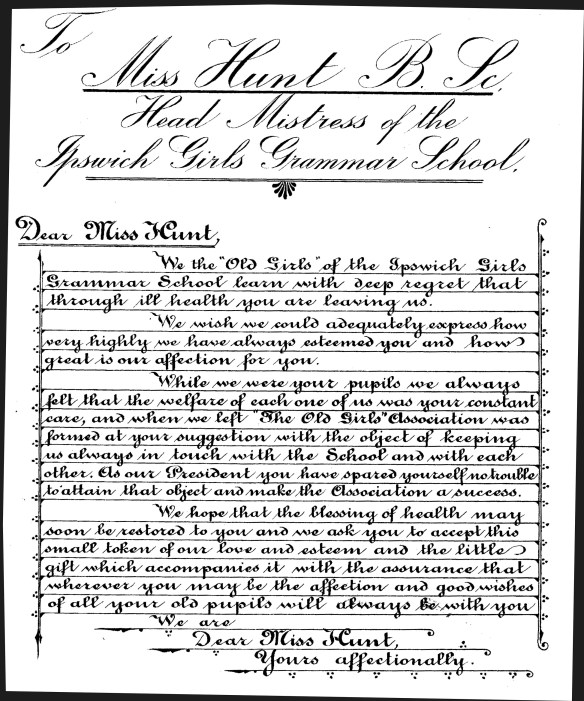 To
Miss Hunt B. Sc.
Head Mistress of the
Ipswich Girls Grammar School.
Dear Miss Hunt,
We the "Old Girls" of the Ipswich Girls
Grammar School learn with deep regret that
through ill health you are leaving us.
We wish we could adequately express how
very highly we have always esteemed you and how
great is our affection for you.
While we were your pupils we always
felt that the welfare of each one of us was your constant
care, and when we left "The Old Girls" Association was
formed at your suggestion with the object of keeping
us always in touch with the School and with each
other. As our President you have spared yourself no trouble
to attain that object and make the Association a success.
We hope that the blessing of health may
soon be restored to you and we ask you to accept this
small token of our love and esteem and the little
gift which accompanies it with the assurance that
wherever you may be the affection and good wishes
of all your old pupils will always be with you
We are
Dear Miss Hunt,
Yours affectionally.